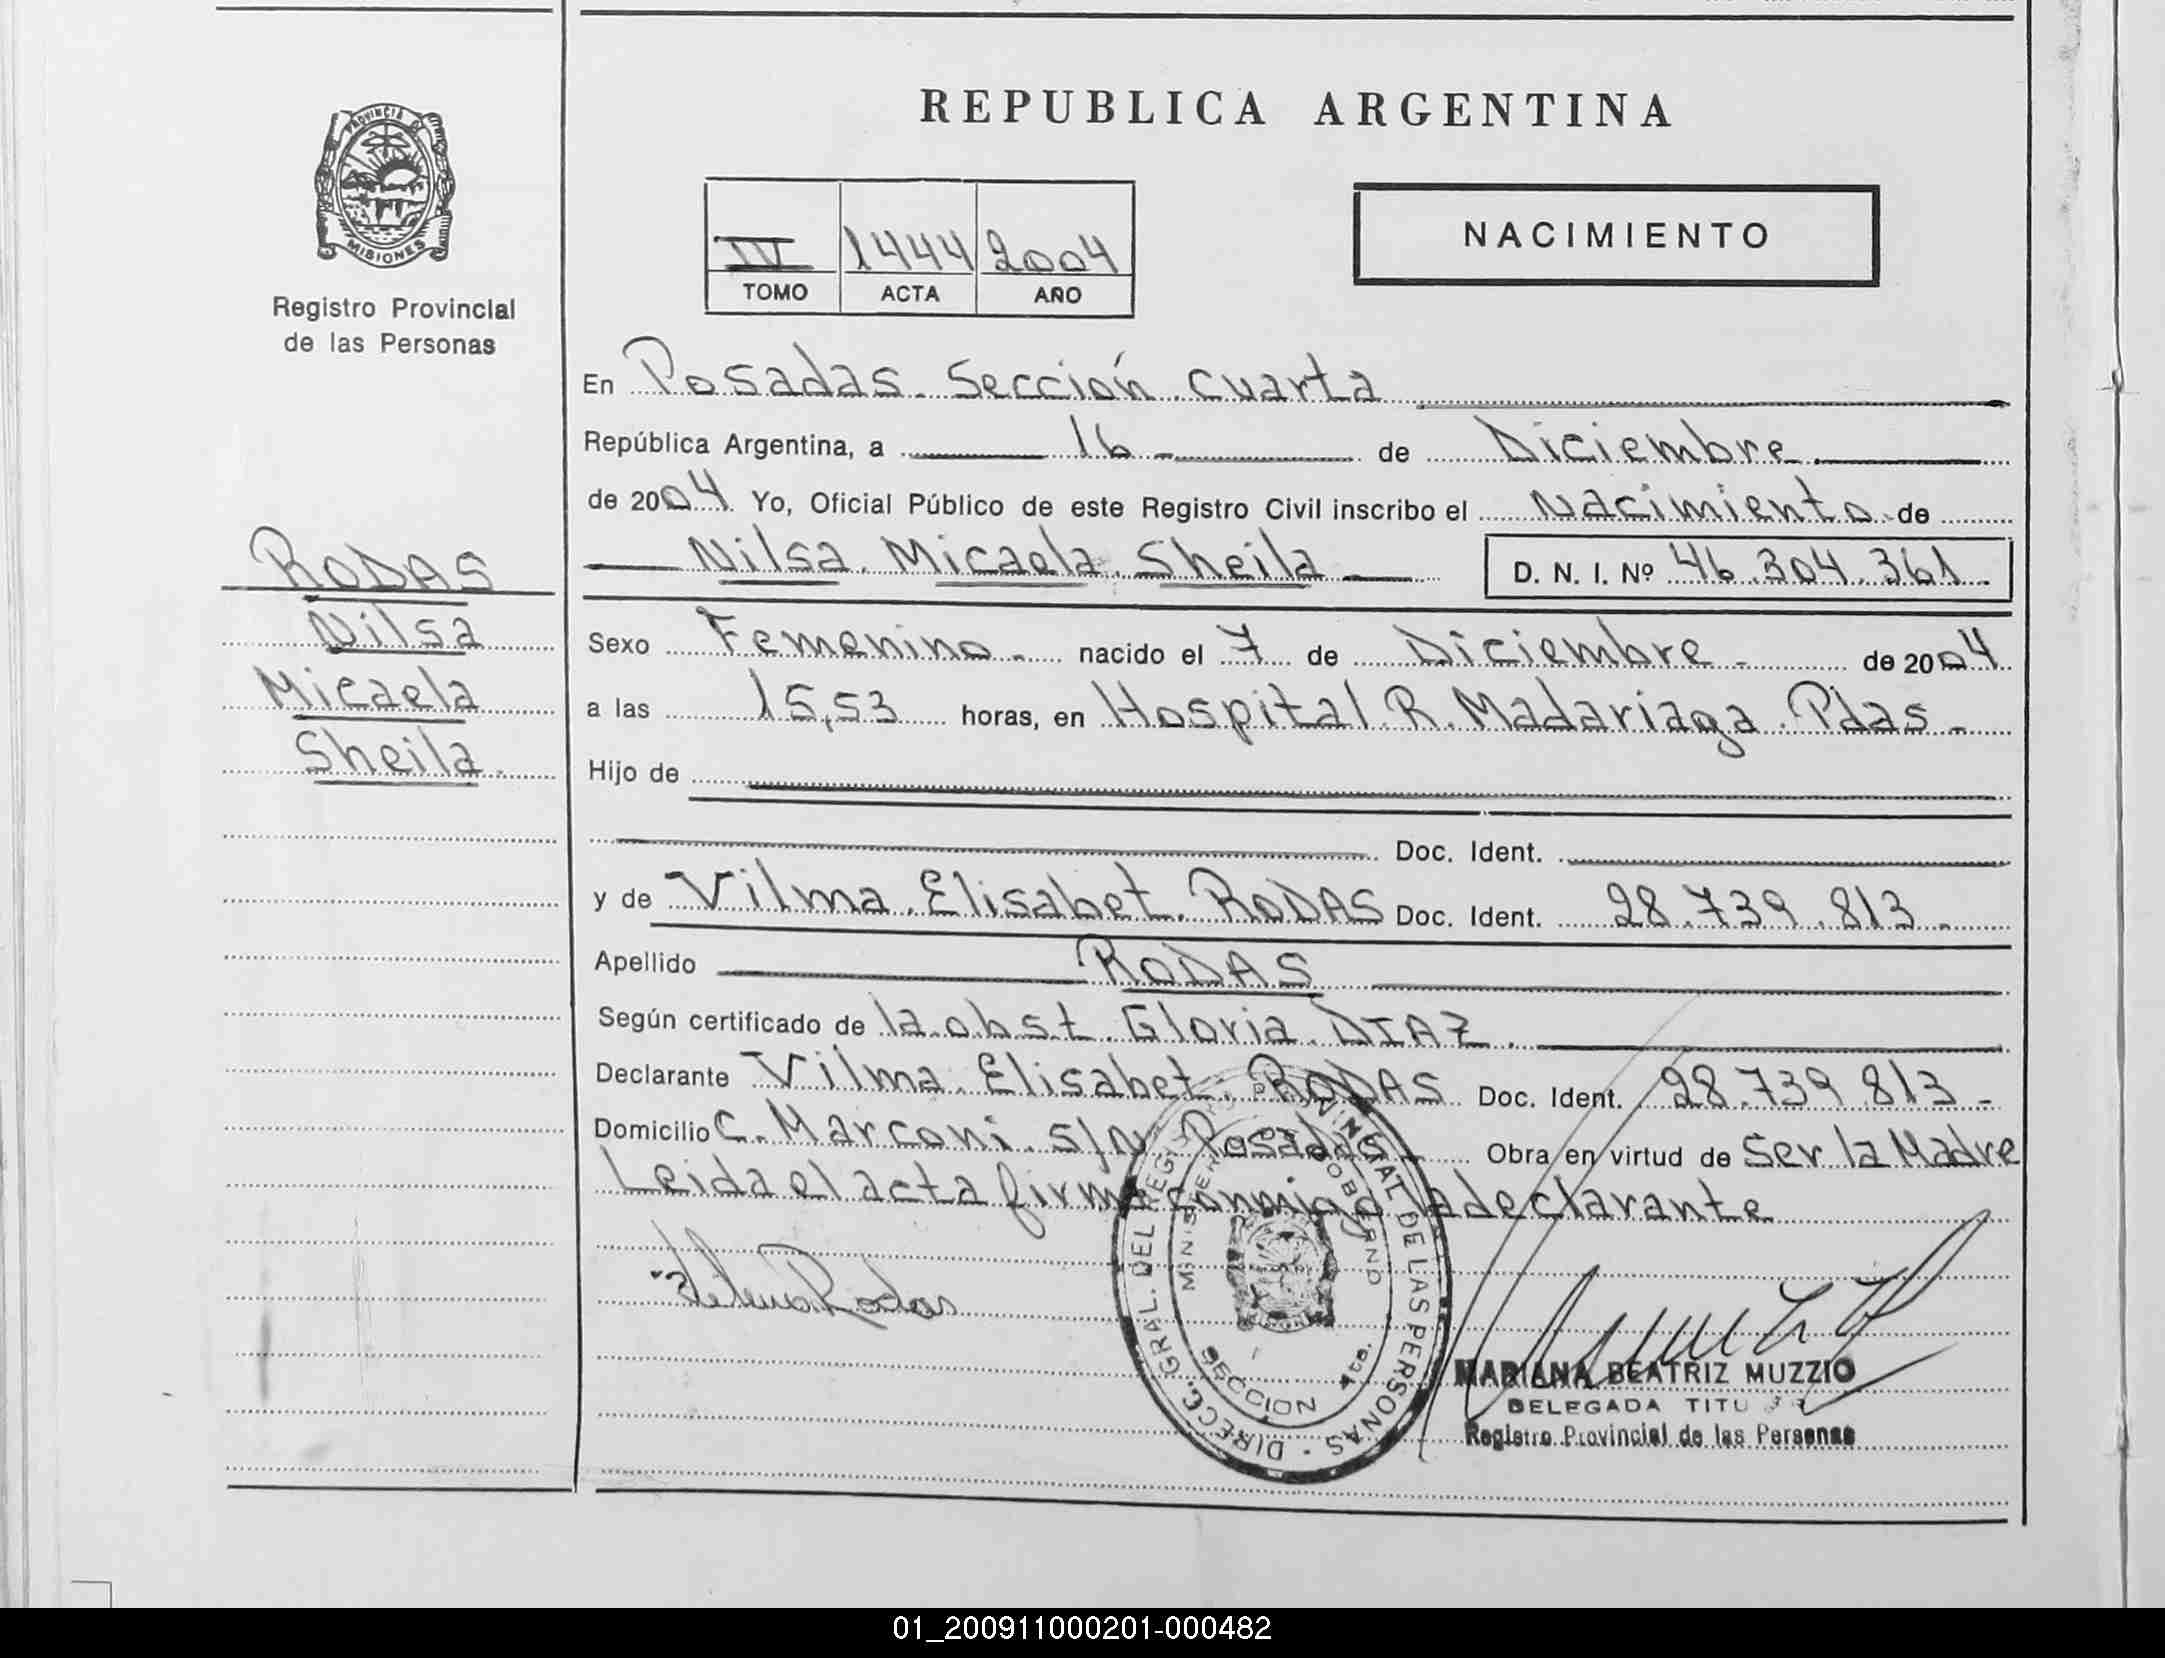 REPUBLICA ARGENTINA
PROVINCIA D
MISIONES
Registro Provincial
de las Personas
NACIMIENTO
IV 1444 2004
TOMO ACTA AÑO
En Posadas. Sección cuarta
República Argentina, a 16 - de Diciembre
de 2004 Yo, Oficial Público de este Registro Civil inscribo el Nacimiento de
Nilsa Micaela Sheila D. N. I. Nº 46.304.361
RODAS
Nilsa
Micaela
Sheila
Sexo Femenino - nacido el 7 de Diciembre - de 2004
a las 15,53 horas, en Hospital R. Madariaga. Pdas -
Hijo de
Doc. Ident.
y de Vilma Elisabet RODAS Doc. Ident. 28.739.813 -
Apellido RODAS
Según certificado de la obst. Gloria DIAZ.
Declarante Vilma Elisabet RODAS Doc. Ident. 28.739.813 -
Domicilio C. Marconi s/N Posadas Obra en virtud de Ser la Madre
Leida el acta firma conmigo la declarante
Rodas
DIRECC. GRAL. DEL REGISTRO PROVINCIAL DE LAS PERSONAS -
MINISTERIO DE GOBIERNO
SECCION 4ta.
MARIANA BEATRIZ MUZZIO
DELEGADA TITU
Registro Provincial de las Personas
01_200911000201-000482